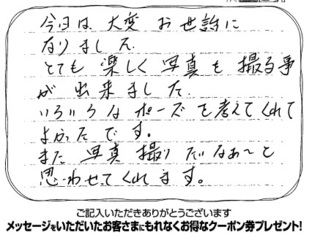 今日は大変お世話に
なりました
とても楽しく写真も撮る事
が出来ました.
いろいろなポーズを考えてくれて
よかったです。
また写真撮りたいなぁ〜と
思わせてくれます。
ご記入いただきありがとうございます
メッセージをいただいたお客さまにもれなくお得なクーポン券プレゼント!